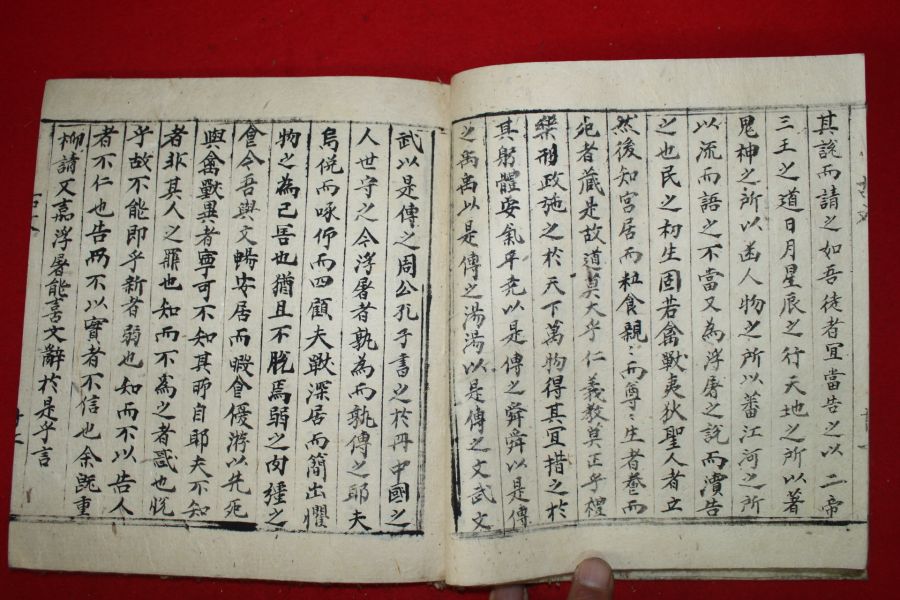 其說而請之如吾徒者宜當告之以二帝
三王之道日月星辰之行天地之所以著
鬼神之所以幽人物之所以蕃江河之所
以流而語之不當又為浮屠之說而瀆告
之也民之初生固若禽獸夷狄聖人者立
然後知宮居而粒食親〻而尊生者養而
死者藏是故道莫大乎仁義教莫正乎禮
樂刑政施之於天下萬物得其宜措之於
其躬體安氣平堯以是傳之舜舜以是傳
之禹禹以是傳之湯湯以是傳之文武文
武以是傳之周公孔子書之於冊中國之
人世守之今浮屠者孰為而孰傳之耶夫
鳥俛而啄仰而四顧夫獸深居而簡出懼
物之為己害也猶且不脫焉弱之肉強之
食今吾與文暢安居而暇食優游以生死
與禽獸異者寧可不知其所自耶夫不知
者非其人之罪也知而不為之者惑也悅
乎故不能即乎新者弱也知而不以告人
者不仁也告而不以實者不信也余既重
柳請又嘉浮屠能喜文辭於是乎言